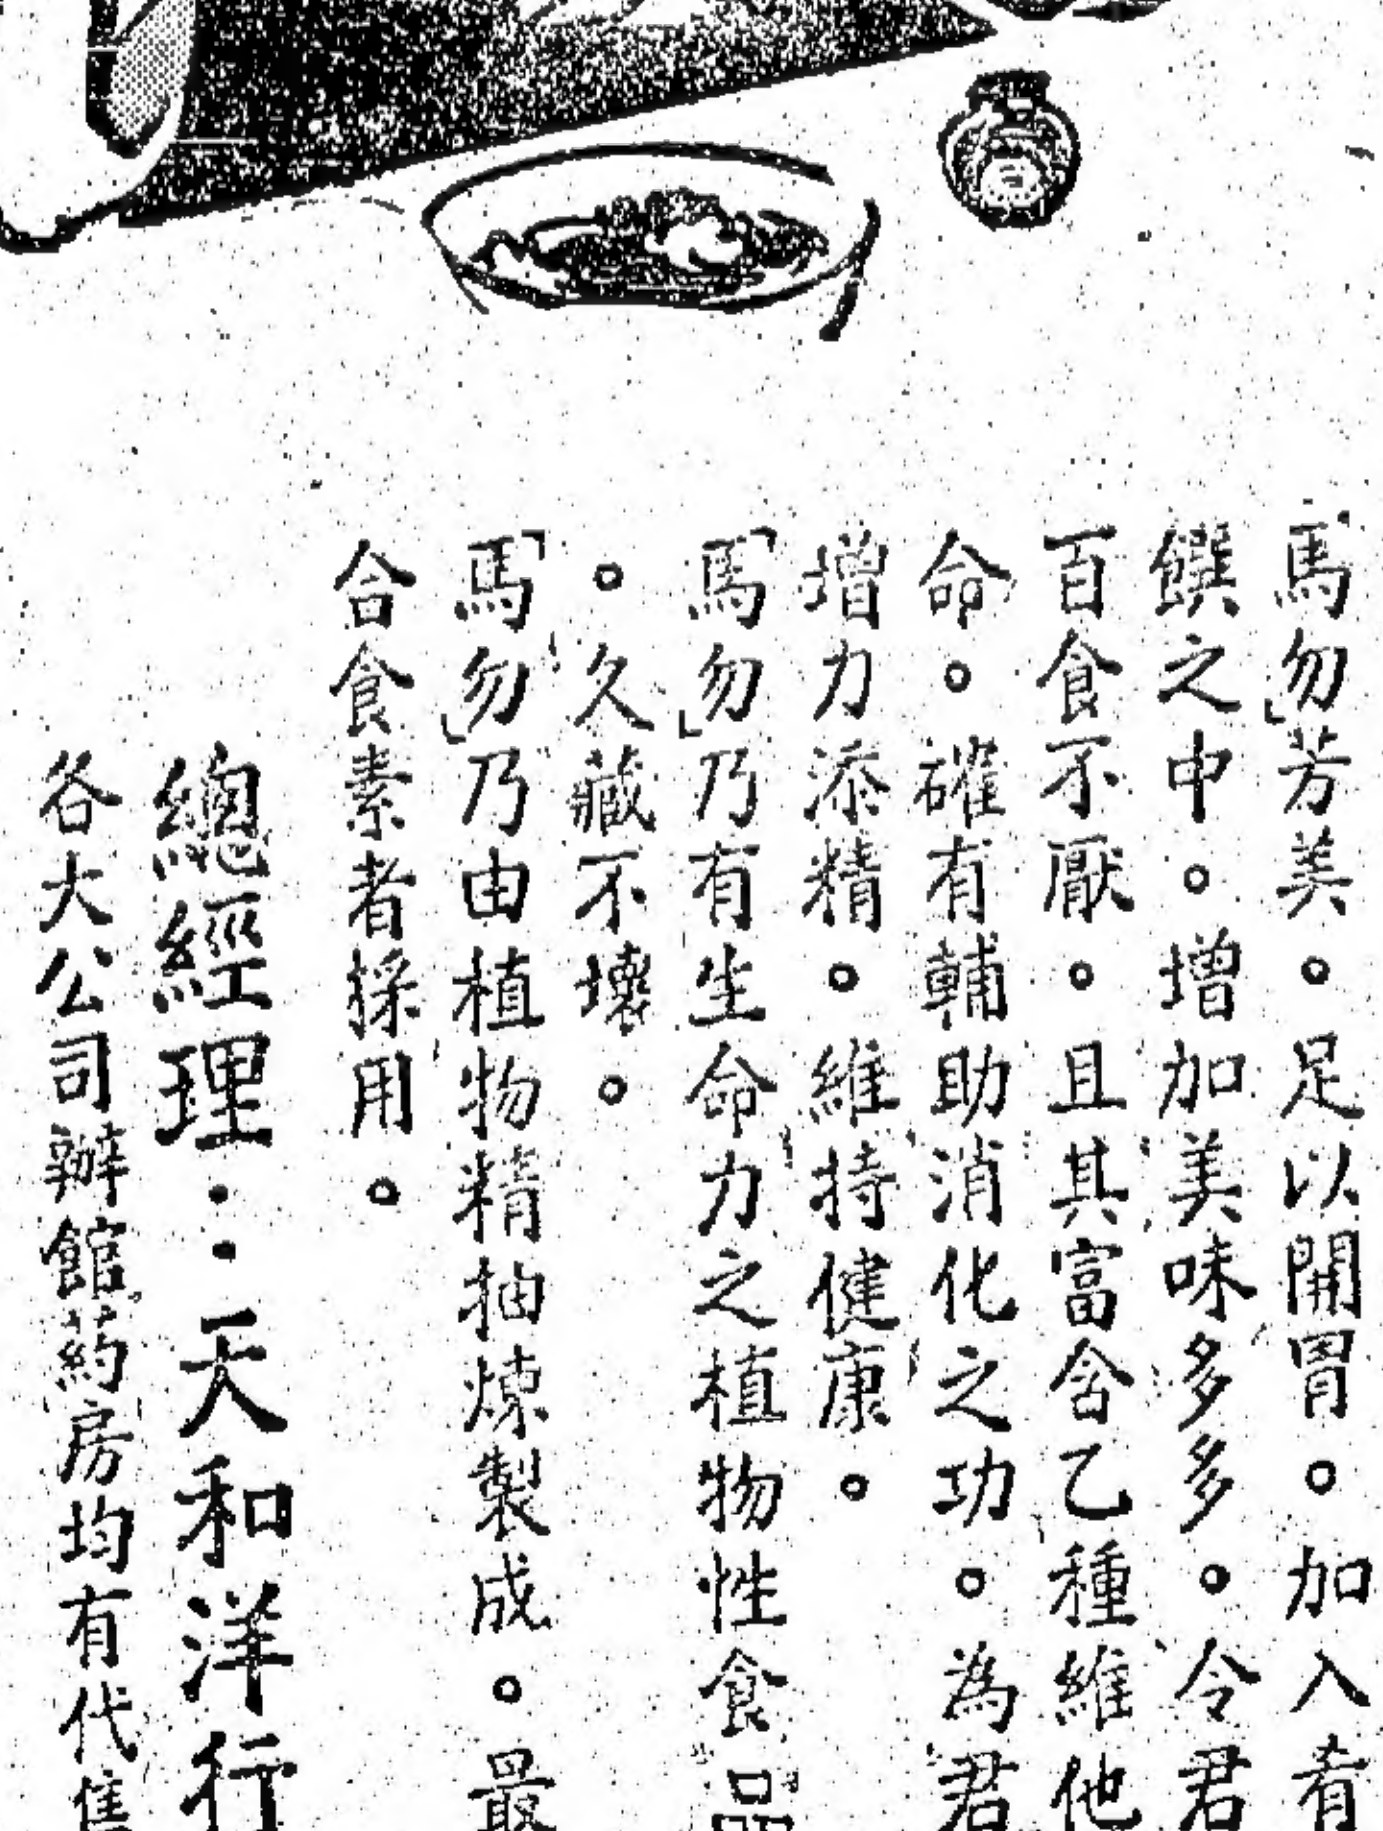 「馬勿」芳美。足以開胃。加入肴
饌之中。增加美味多多。令君
百食不厭。且其富含乙種維他
命。確有輔助消化之功。為君
增力添精。維持健康。
「馬勿」乃有生命力之植物性食品
。久藏不壞。
「馬勿」乃由植物精抽煉製成。最
合食素者採用。
總經理：天和洋行
各大公司辦館葯房均有代售